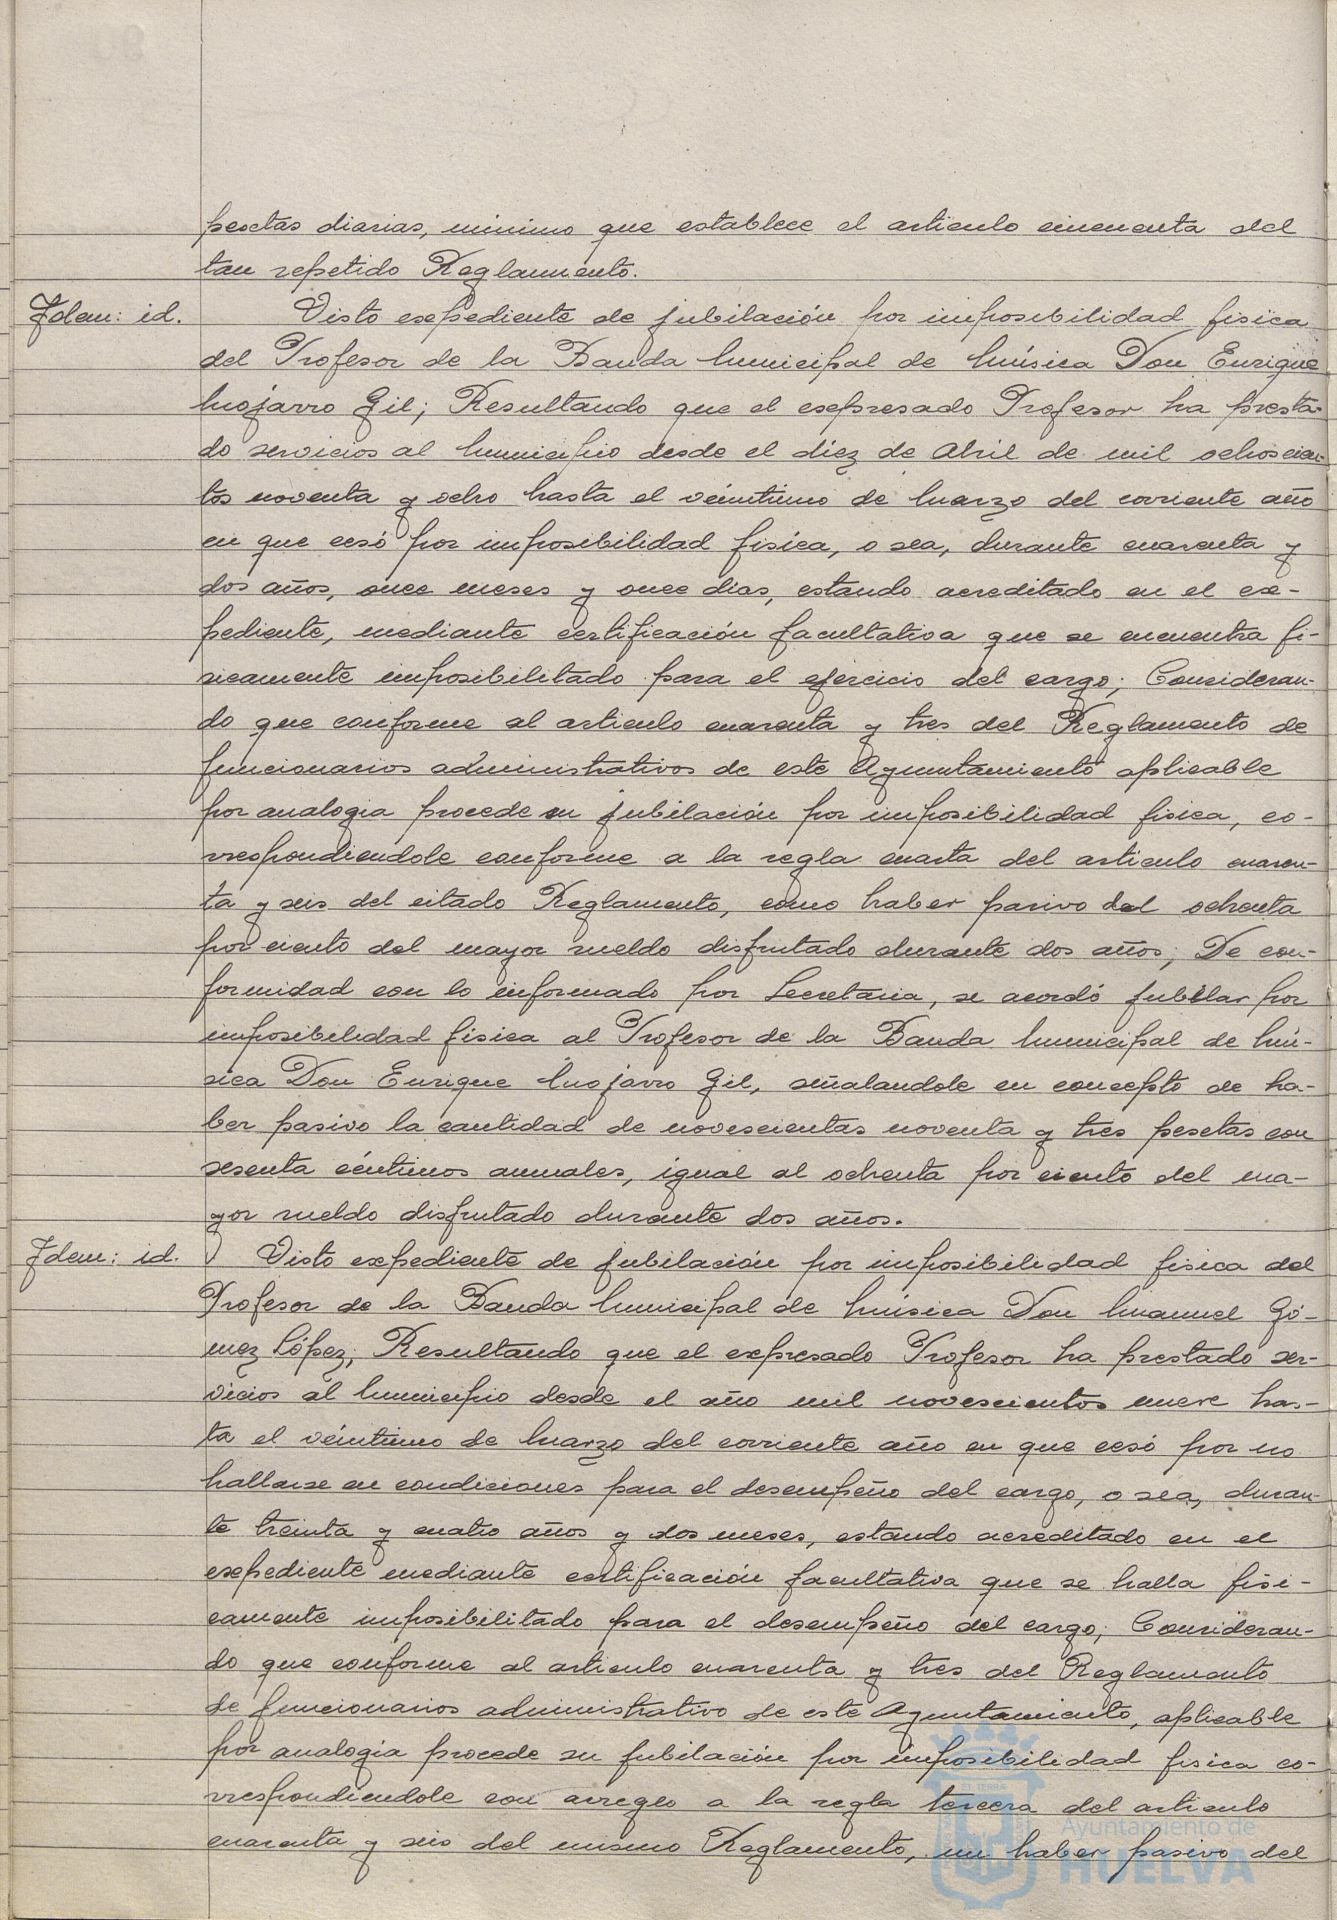 pesetas diarias, minimo que establece el articulo cincuenta del
tan repetido Reglamento.
Idem: id.
Visto exepediente de jubilación por imposibilidad fisica
del Profesor de la Banda Municipal de Música Don Enrique
Mojarro Gil; Resultando que el exepresado Profesor ha presta-
do servicios al Municipio desde el diez de Abril de mil ochoscien-
tos noventa y ocho hasta el veintiuno de Marzo del corriente año
en que cesó por imposibilidad fisica, o sea, durante cuarenta y
dos años, once meses y once dias, estando acreditado en el exe-
pediente, mediante certificación facultativa que se encuentra fi-
sicamente imposibilitado para el ejercicio del cargo; Consideran-
do que conforme al articulo cuarenta y tres del Reglamento de
funcionarios administrativos de este Ayuntamiento aplicable
por analogia procede su jubilación por imposibilidad fisica, co-
rrespondiendole conforme a la regla cuarta del articulo cuaren-
ta y seis del citado Reglamento, como haber pasivo del ochenta
por ciento del mayor sueldo disfrutado durante dos años; De con-
formidad con lo informado por Secretaria, se acordó jubilar por
imposibilidad fisica al Profesor de la Banda Municipal de Mú-
sica Don Enrique Mojarro Gil, señalandole en concepto de ha-
ber pasivo la cantidad de novescientas noventa y tres pesetas con
sesenta céntimos anuales, igual al ochenta por ciento del ma-
yor sueldo disfrutado durante dos años.
Idem: id.
Visto expediente de jubilación por imposibilidad fisica del
Profesor de la Banda Municipal de Música Don Manuel Gó-
mez López; Resultando que el expresado Profesor ha prestado ser-
vicios al Municipio desde el año mil novescientos nueve has-
ta el veintiuno de Marzo del corriente año en que cesó por no
hallarse en condiciones para el desempeño del cargo, o sea, duran-
te treinta y cuatro años y dos meses, estando acreditado en el
exepediente mediante certificación facultativa que se halla fisi-
camente imposibilitado para el desempeño del cargo; Consideran-
do que conforme al articulo cuarenta y tres del Reglamento
de funcionarios administrativo de este Ayuntamiento, aplicable
por analogia procede su jubilación por imposibilidad fisica co-
rrespondiendole con arreglo a la regla tercera del articulo
cuarenta y seis del mismo Reglamento, un haber pasivo del
Ayuntamiento de
HUELVA